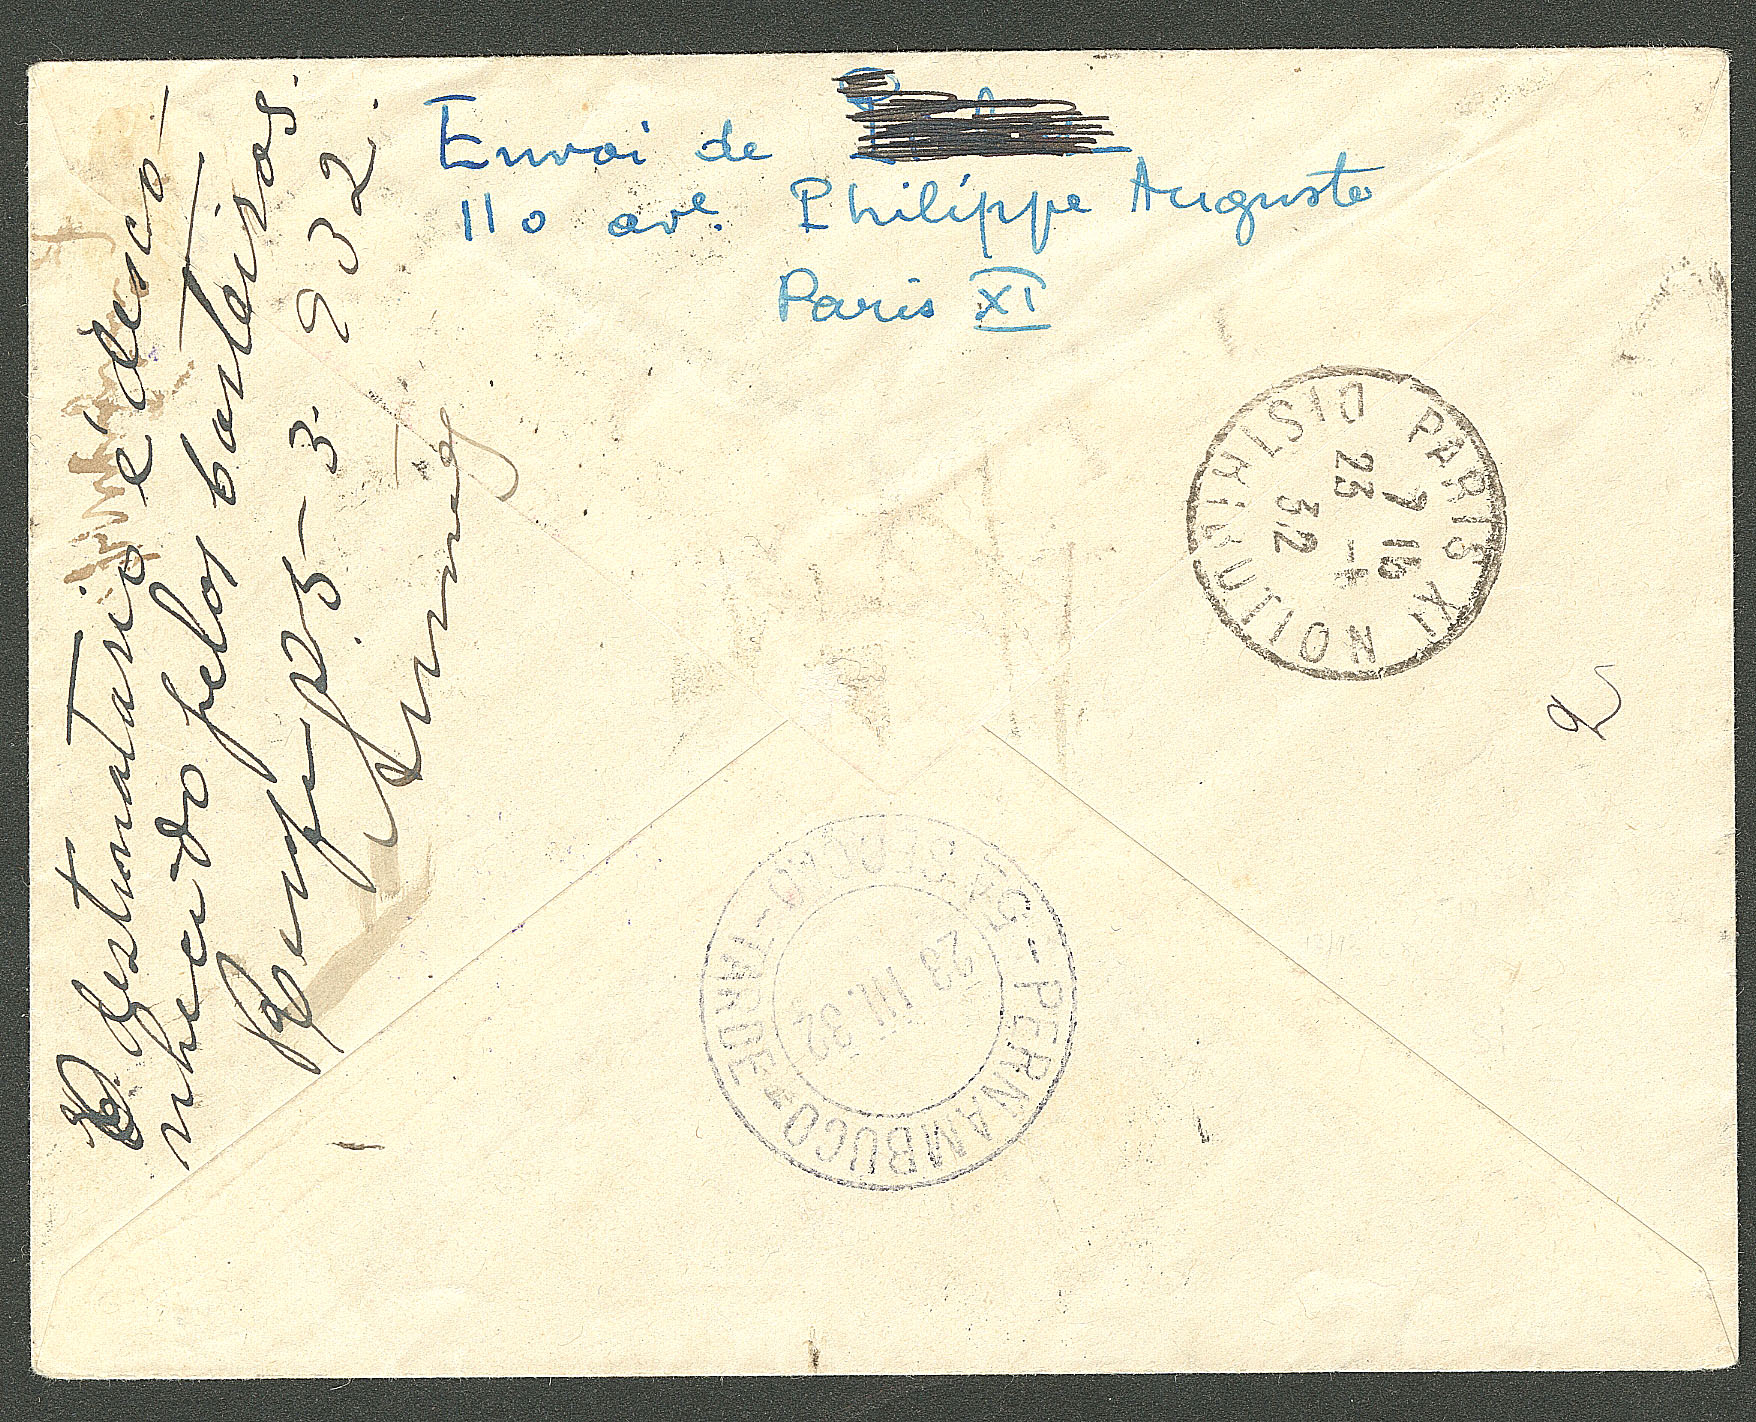 Envoi de
110 ave. Philippe Auguste
Paris XI
O destinatario é desco-
nhecido pelos carteiros.
Recife, 25-3-932.
PARIS XI DISTRIBUTION
7 15
23 -4
32
2
PERNAMBUCO
TARDE
23 III. 32